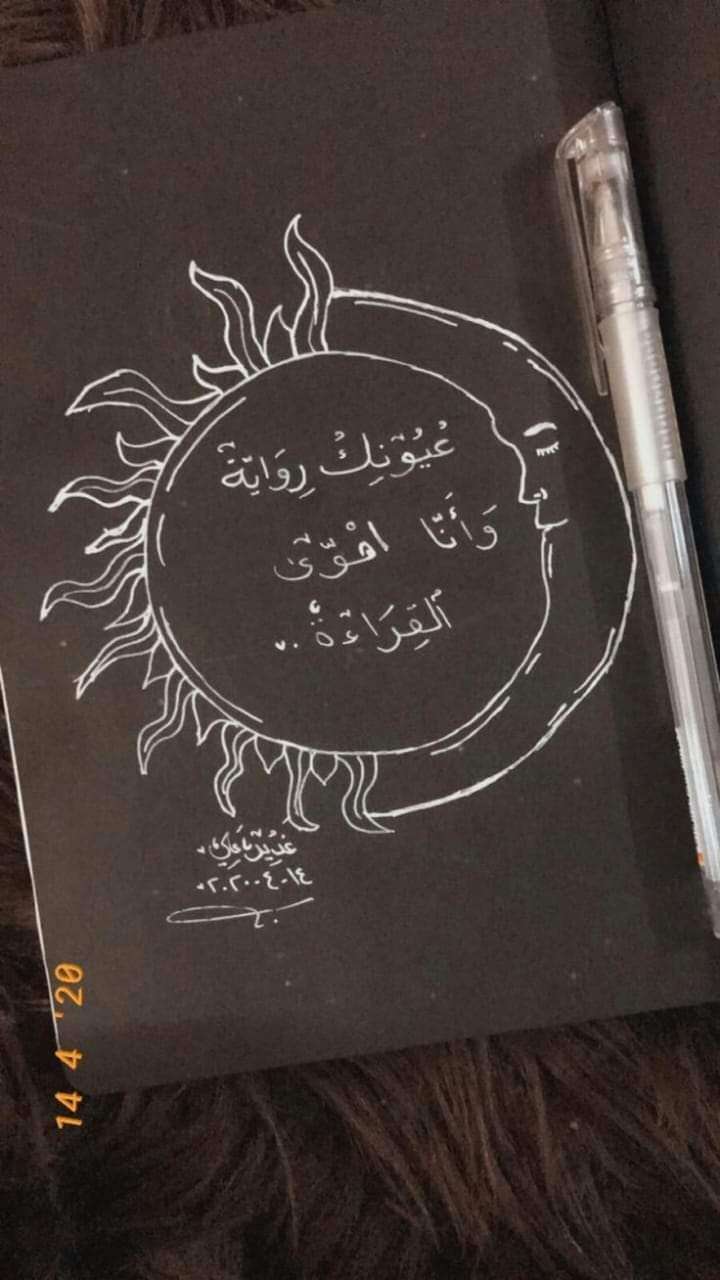 عُيُوْنِكْ رِوَايَةْ
وَأَنَا اهْوَىٰ
القِرَاءَةْ ..
غدير
١٤-٤-٢٠٢٠
14 4 '20